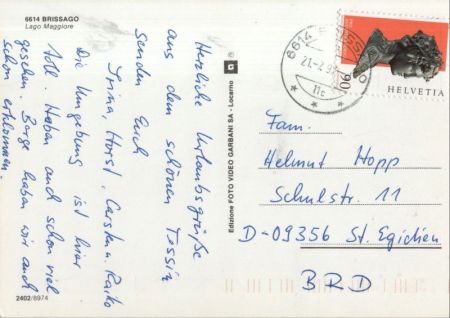 6614 BRISSAGO
Lago Maggiore
Herzliche Urlaubsgrüße
aus dem schönen Tessin
senden Euch
Irina, Horst, Carsten u. Raiko
Die Umgebung ist hier
toll. Haben auch schon viel
gesehen. Berge haben wir auch
schon erklommen.
2402/8974
Edizione FOTO VIDEO GARBANI SA - Locarno
G
6614 BRISSAGO
21.-2.97
11c
90
HELVETIA
Fam.
Helmut Hopp
Schulstr. 11
D-09356 St. Egidien
BRD